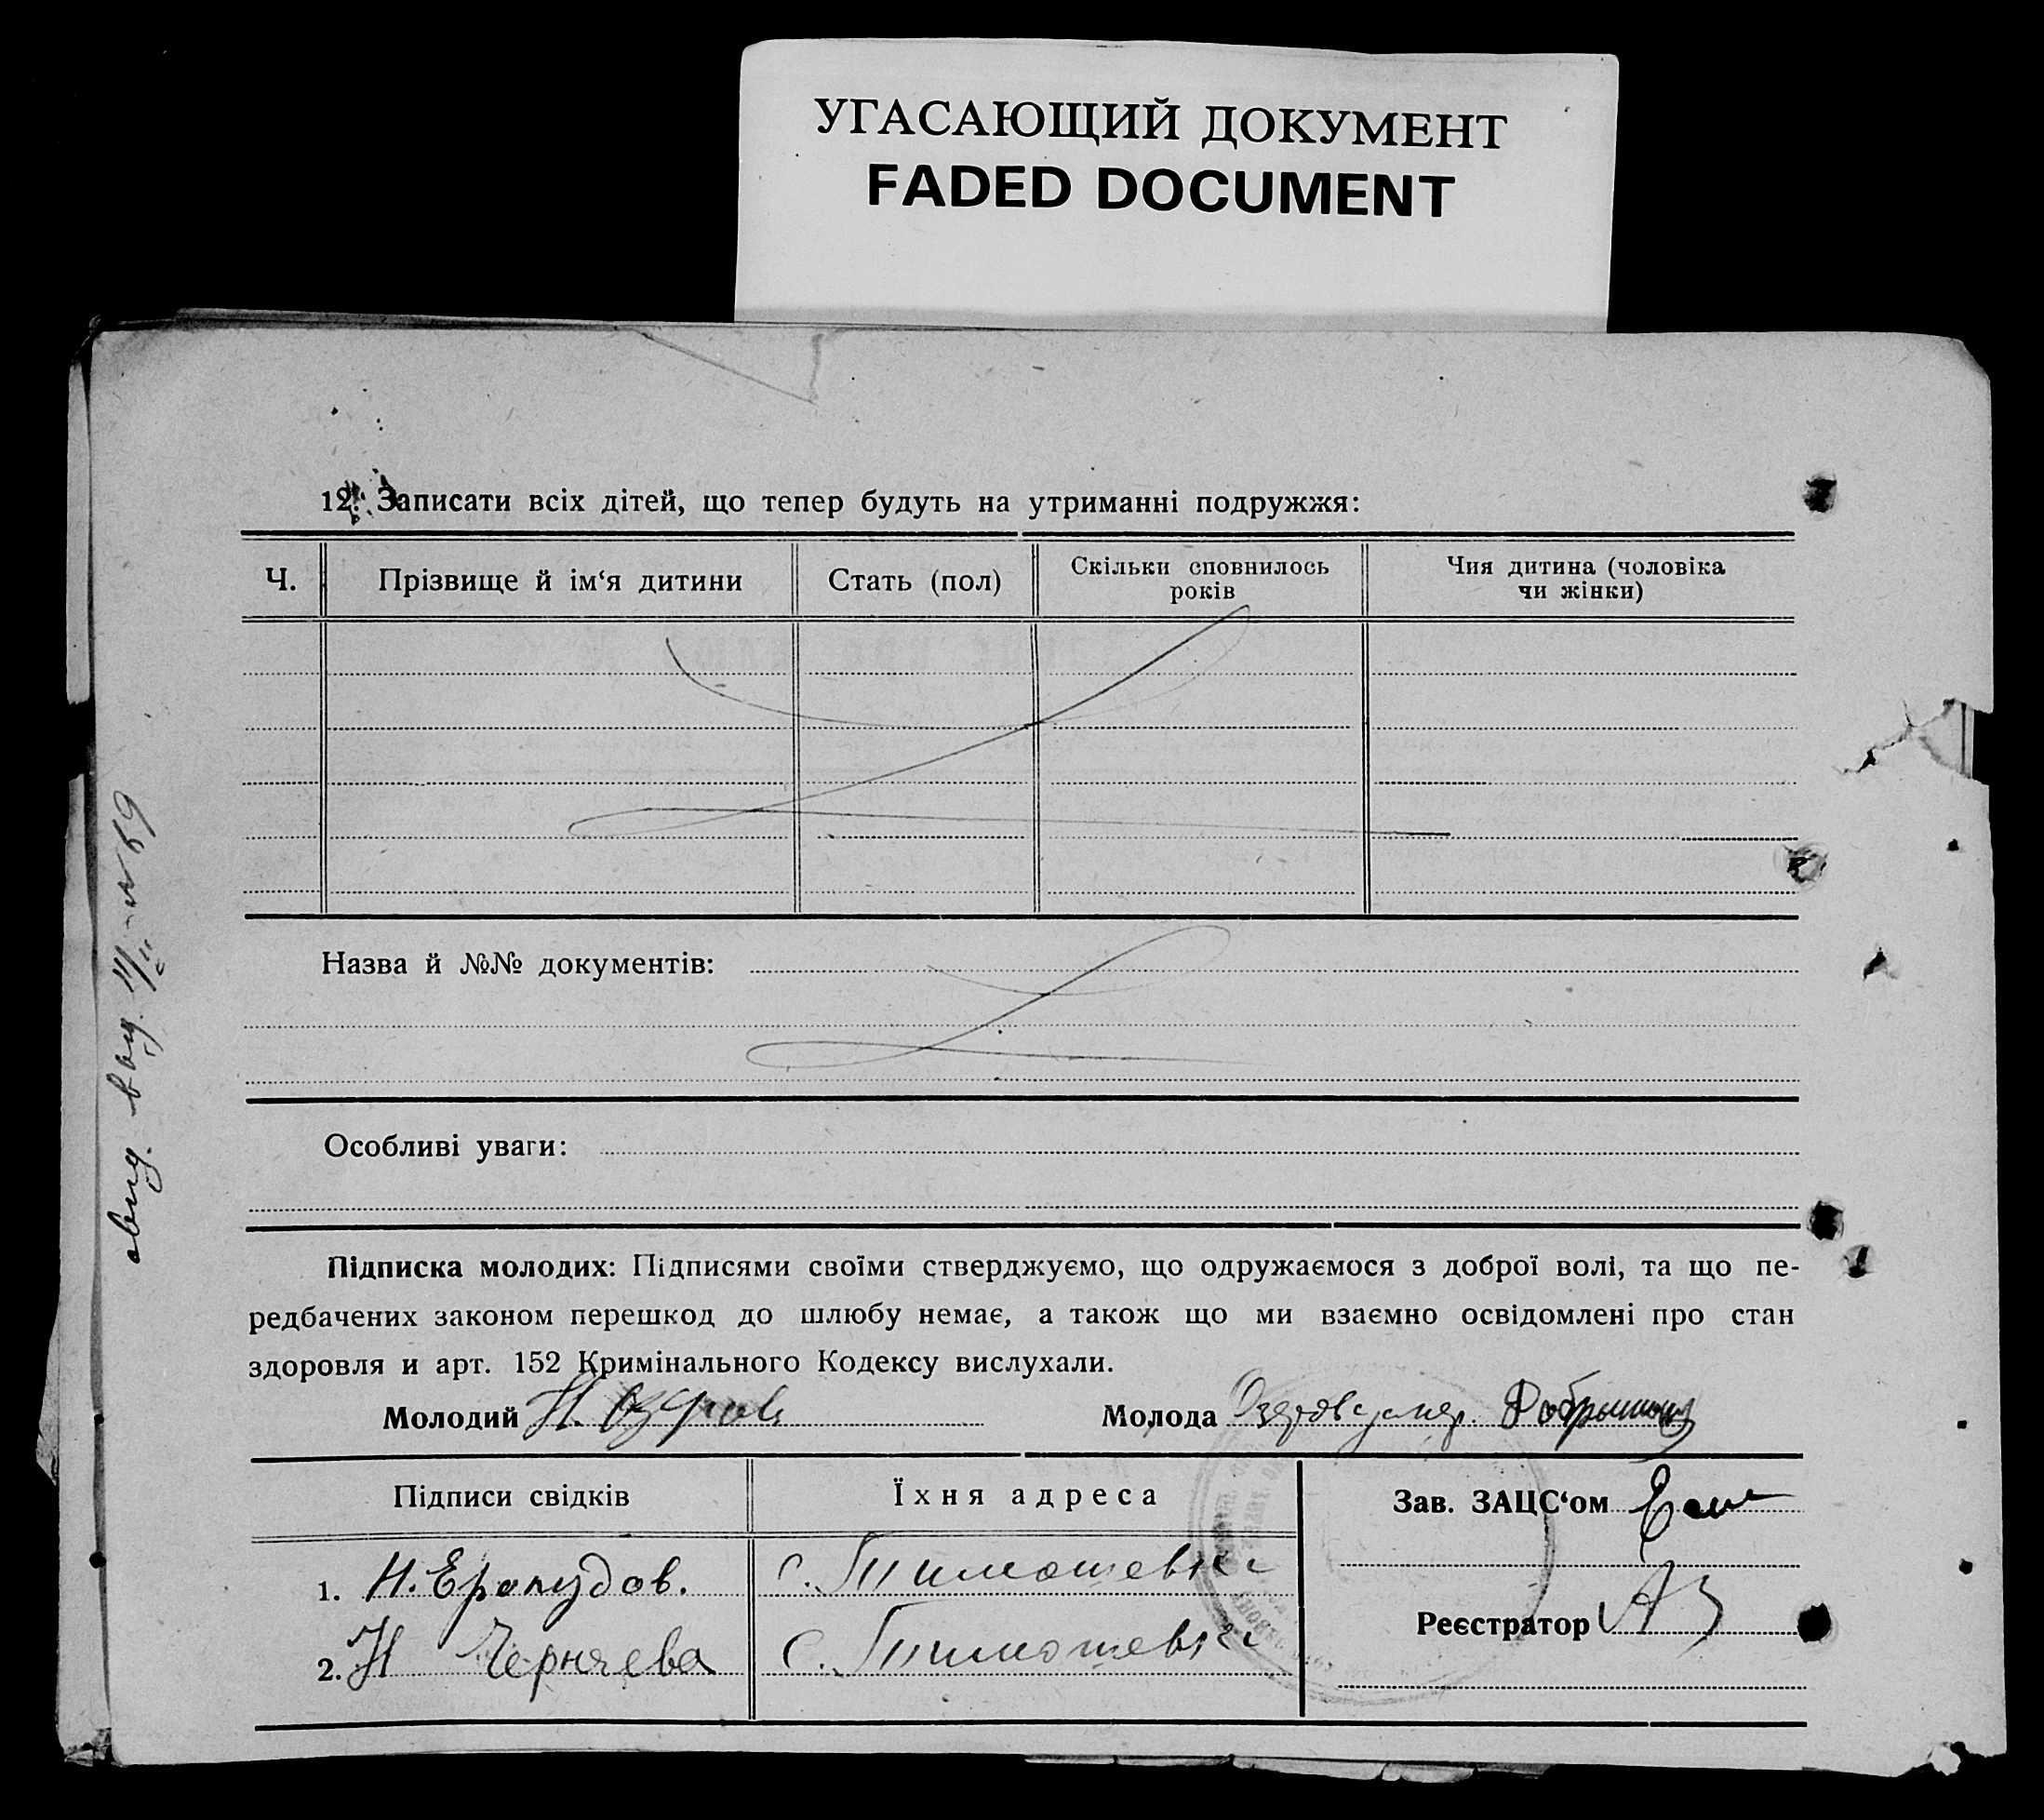 УГАСАЮЩИЙ ДОКУМЕНТ
FADED DOCUMENT
12. Записати всіх дітей, що тепер будуть на утриманні подружжя:
Ч.
Прізвище й ім‘я дитини
Стать (пол)
Скільки сповнилось
років
Чия дитина (чоловіка
чи жінки)
Назва й №№ документів:
Особливі уваги:
Підписка молодих: Підписями своїми стверджуємо, що одружаємося з доброї волі, та що пе-
редбачених законом перешкод до шлюбу немає, а також що ми взаємно освідомлені про стан
здоровля и арт. 152 Кримінального Кодексу вислухали.
Молодий Н.
Молода
Підписи свідків
Їхня адреса
Зав. ЗАЦС‘ом
1. Н. с. Тимошевка
2. Н Черняева с. Тимошевка
Реєстратор